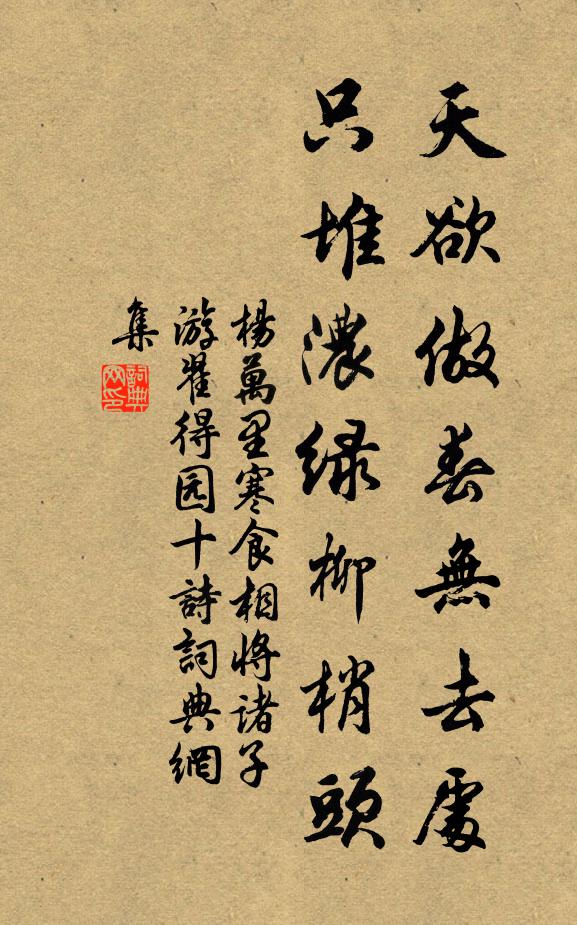 天欲做春無去處
只堆濃緑柳梢頭
楊萬里寒食相將诸子
游翟得园十詩詞典網
集
詞典
网印